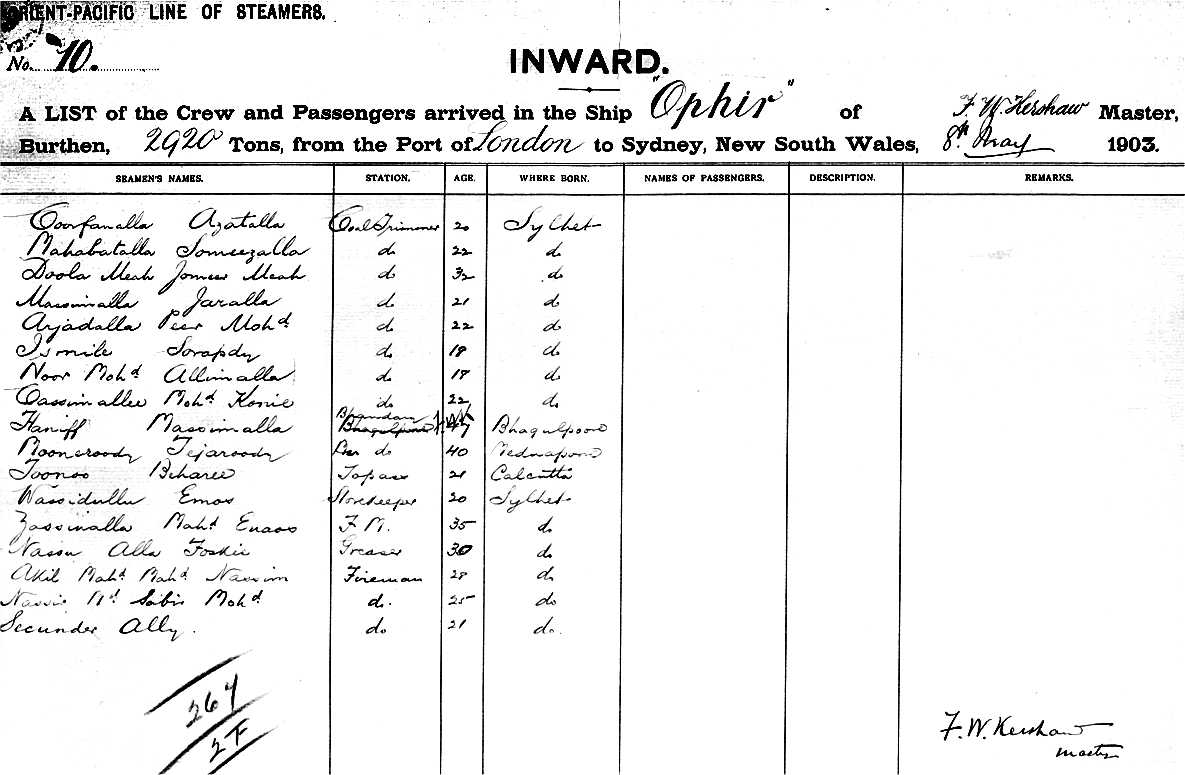 ORIENT-PACIFIC LINE OF STEAMERS.
No. 10.
INWARD.
A LIST of the Crew and Passengers arrived in the Ship "Ophir" of F. W. Kershaw Master,
Burthen, 2920 Tons, from the Port of London to Sydney, New South Wales, 8th May 1903.
SEAMEN'S NAMES. STATION. AGE. WHERE BORN. NAMES OF PASSENGERS. DESCRIPTION. REMARKS.
Goorfanalla Azatalla Coal Trimmer 20 Sylhet
Mahabatalla Someezalla do 22 do
Doola Meah Jomeer Meah do 32 do
Massimalla Jaralla do 21 do
Arjadalla Peer Mohd do 22 do
Ismile Sorapdy do 18 do
Noor Mohd Allimalla do 18 do
Cassimallee Mohd Konie do 22 do
Haniff Massimalla Bhandary 47 Bhagulpoore
Mooneroody Tejaroody do 40 Mednapore
Toonoo Beharee Topass 21 Calcutta
Wassidulla Emos Storekeeper 20 Sylhet
Zassimalla Mahd Enaos F. M. 35 do
Nassu Alla Foskie Greaser 30 do
Akil Mahd Mahd Nassim Fireman 28 do
Nassir Md Sabir Mohd do. 25 do
Secunder Ally. do 21 do.
264
2F
F. W. Kershaw
Master